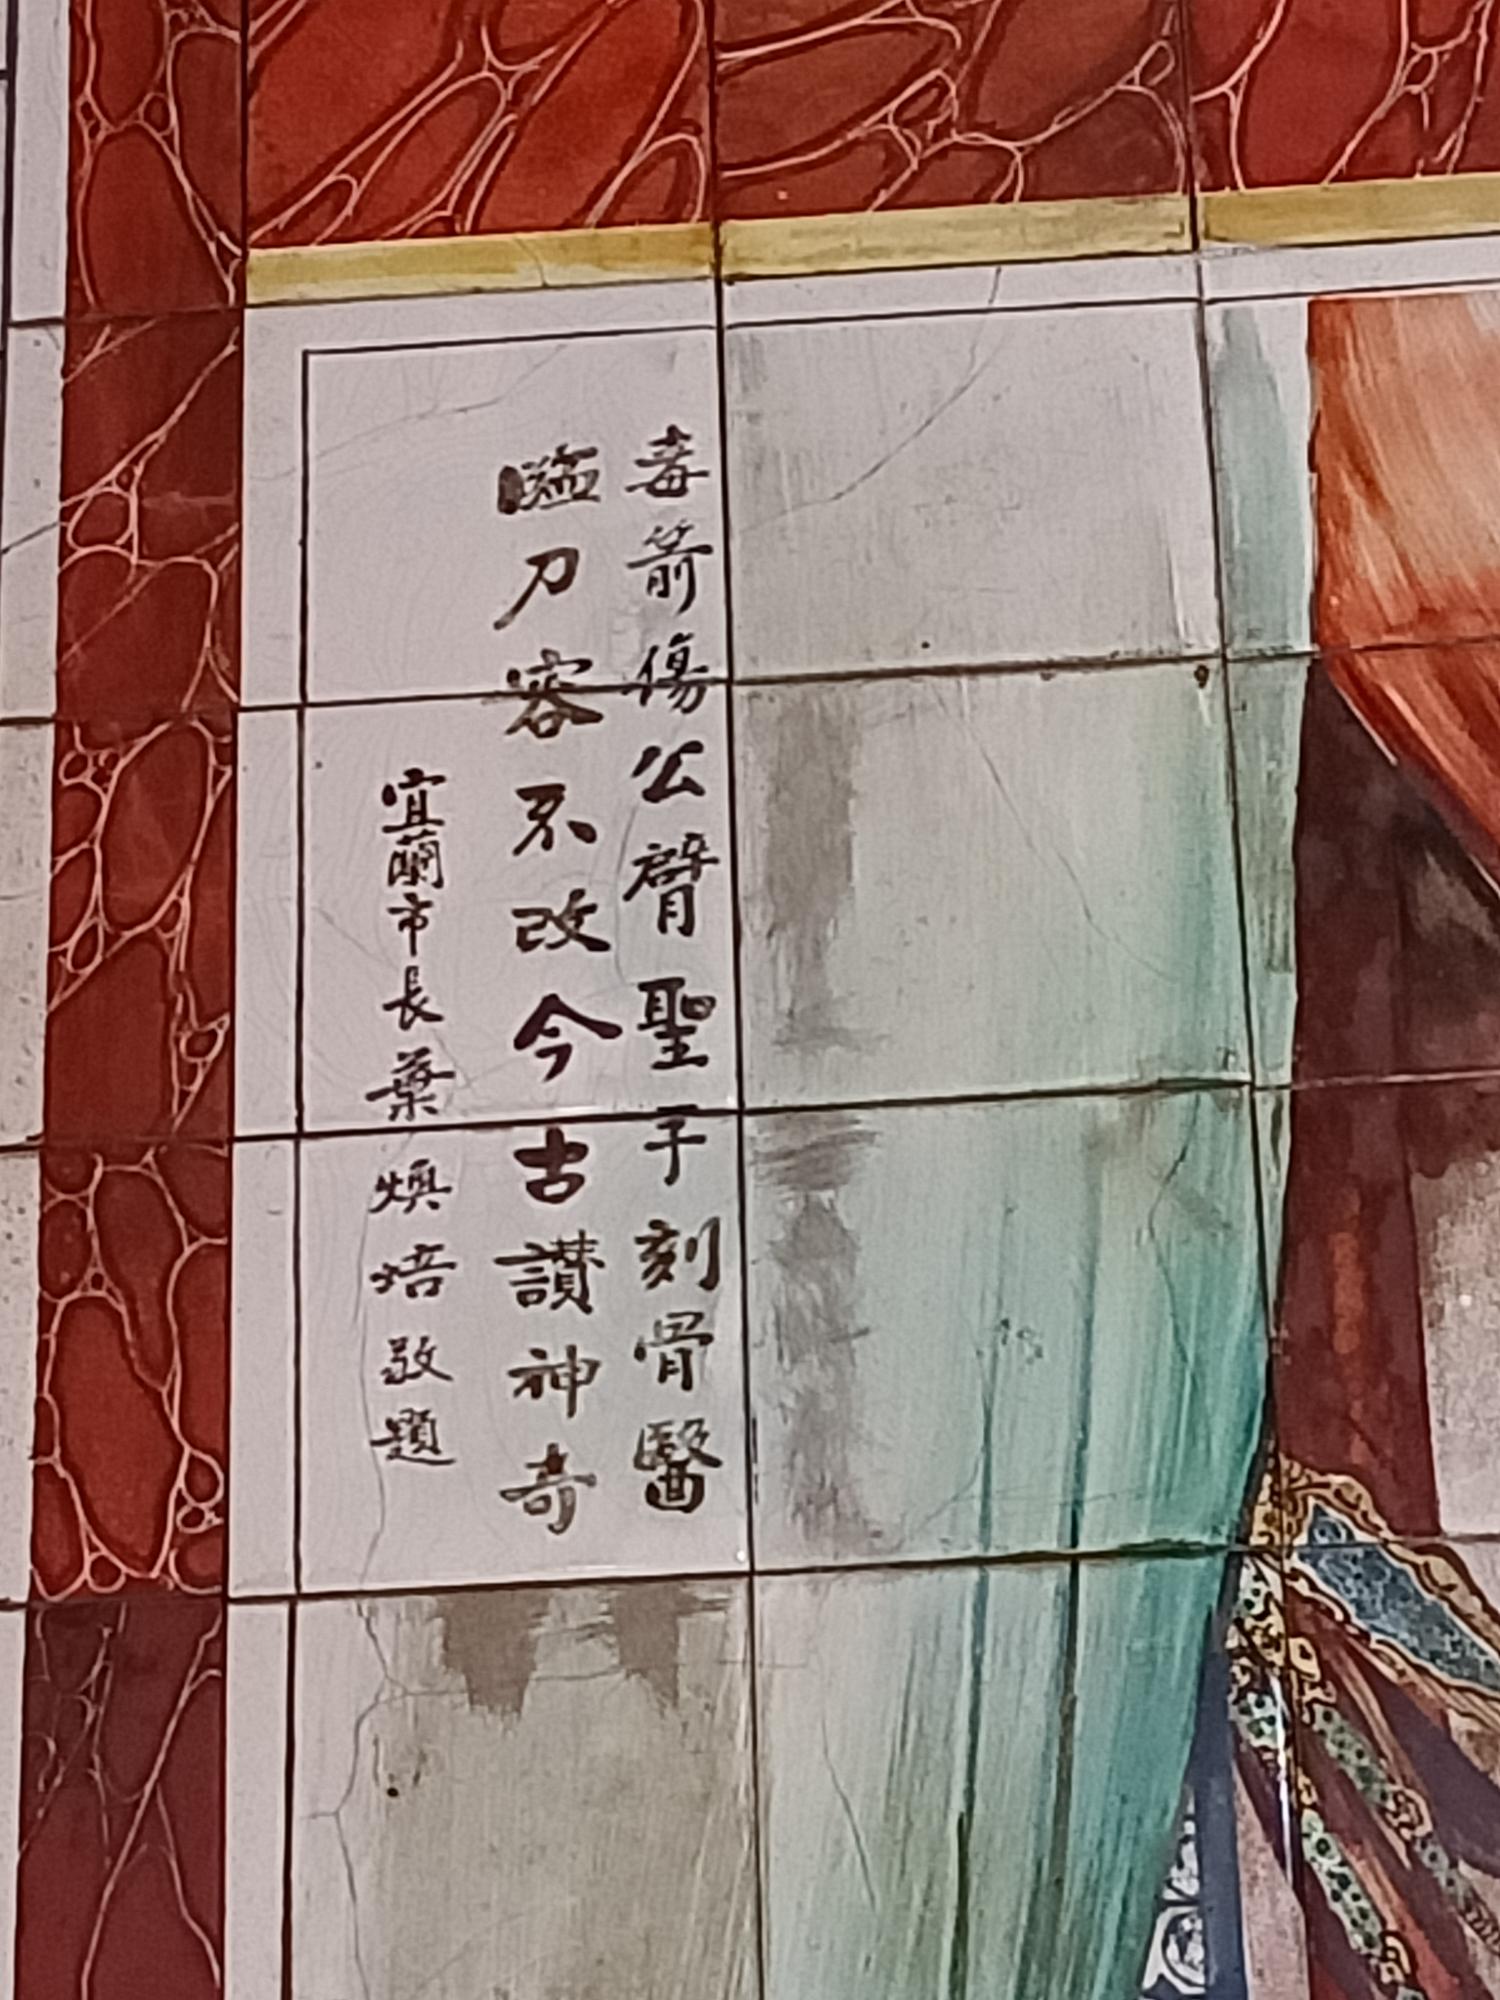 毒箭傷公臂聖手刻骨醫
臨刀容不改今古讃神奇
宜蘭市長葉煥培敬題